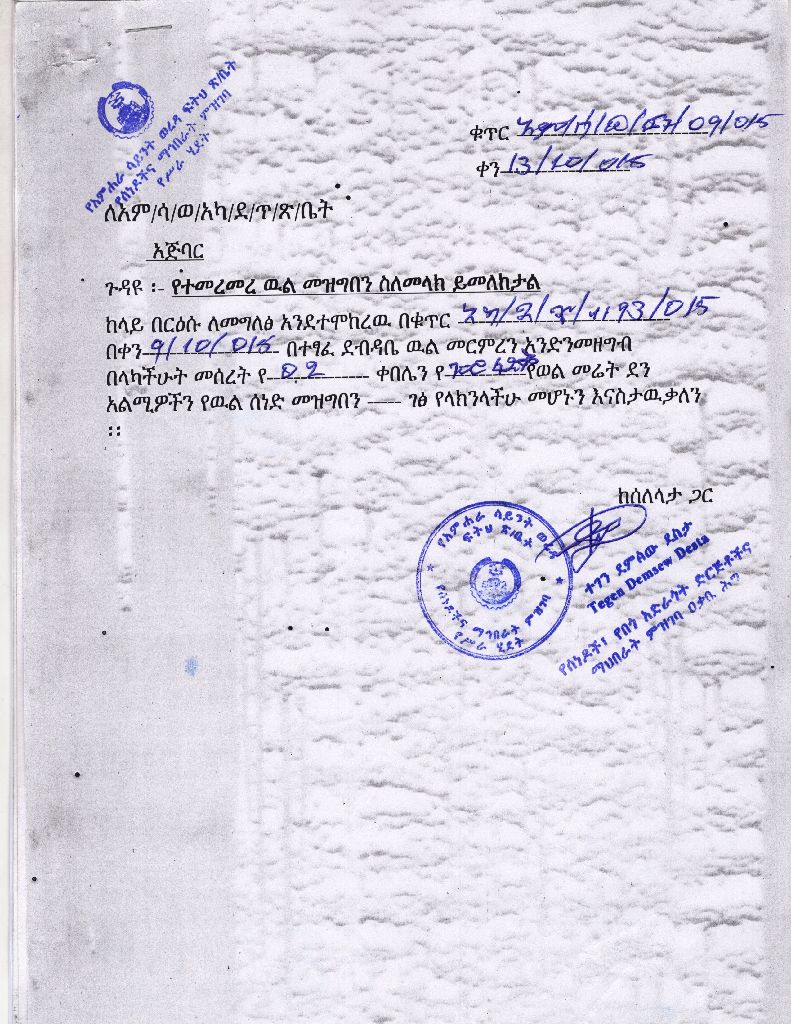 የአምሐራ ሳይንት ወረዳ ፍትህ ጽ/ቤት
የሰነዶችና ማኅበራት ምዝገባ
የሥራ ሂደት
ቁጥር አም/ሳ/ወ/ፍ/09/015
ቀን 13/10/015
ለአም/ሳ/ወ/አካ/ደ/ጥ/ጽ/ቤት
አጅባር
ጉዳዩ ፡- የተመረመረ ዉል መዝግበን ስለመላክ ይመለከታል
ከላይ በርዕሱ ለመግለፅ እንደተሞከረዉ በቁጥር /015
በቀን 9/10/015 በተፃፈ ደብዳቤ ዉል መርምረን እንድንመዘግብ
በላካችሁት መሰረት የ 02 ቀበሌን የ የወል መሬት ደን
አልሚዎችን የዉል ሰነድ መዝግበን ----- ገፅ የላከንላችሁ መሆኑን እናስታዉቃለን
፡፡
ከሰላታ ጋር
የአምሐራ ሳይንት ወረዳ
ፍትህ ጽ/ቤት
የሰነዶችና ማኅበራት ምዝገባ
የሥራ ሂደት
ተገን ደምሰው ደስታ
Tegen Demsew Desta
የሰነዶች፣ የበጎ አድራጎት ድርጅቶችና
ማህበራት ምዝገባ ዐቃቤ ሕግ